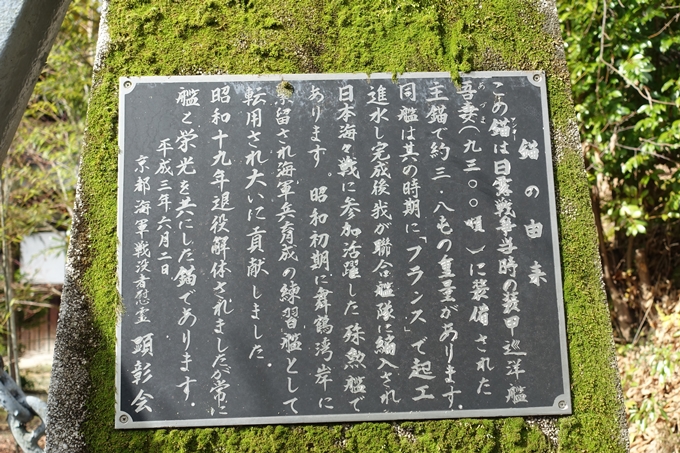 錨の由来
この錨は日露戦争当時の装甲巡洋艦
アンカー
吾妻(九三〇〇噸)に装備された
あづま
主錨で約三・八屯の重量があります。
同艦は其の時期に「フランス」で起工
進水し完成後我が聯合艦隊に編入され
日本海々戦に参加活躍した殊勲艦で
あります。昭和初期に舞鶴湾岸に
係留され海軍兵育成の練習艦として
転用され大いに貢献しました。
昭和十九年退役解体されましたが常に
艦と栄光を共にした錨であります。
平成三年六月二日
京都海軍戦没者慰霊 顕彰会